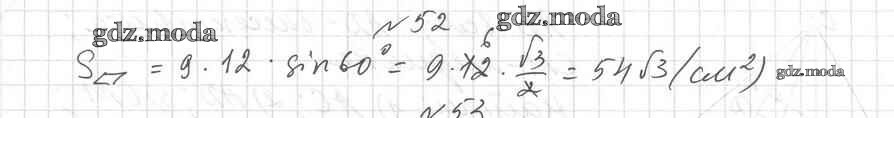 №52 gdz.moda
gdz.moda
S▱ = 9 · 12 · sin60° = 9 · 12 6 · √3/2 = 54√3 (см²) gdz.moda
№53